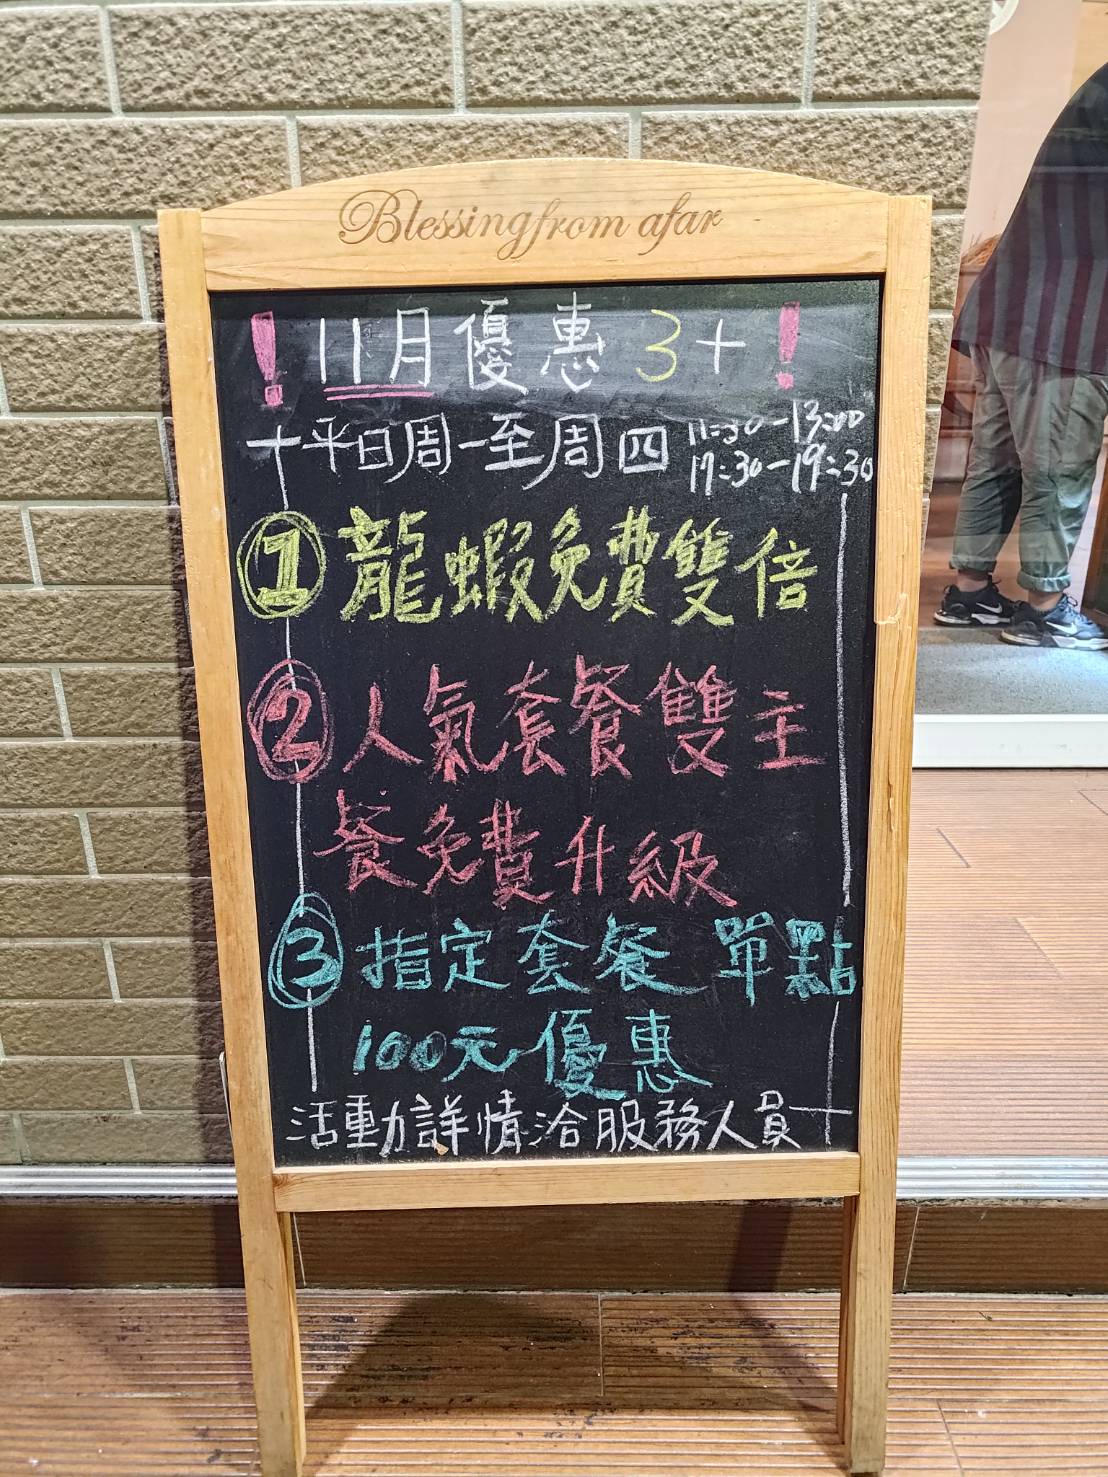 Blessing from afar
！11月優惠3+！
平日周一至周四 11:30-13:00
17:30-19:30
1 龍蝦免費雙倍
2 人氣套餐雙主
餐免費升級
3 指定套餐 單點
100元優惠
活動詳情洽服務人員